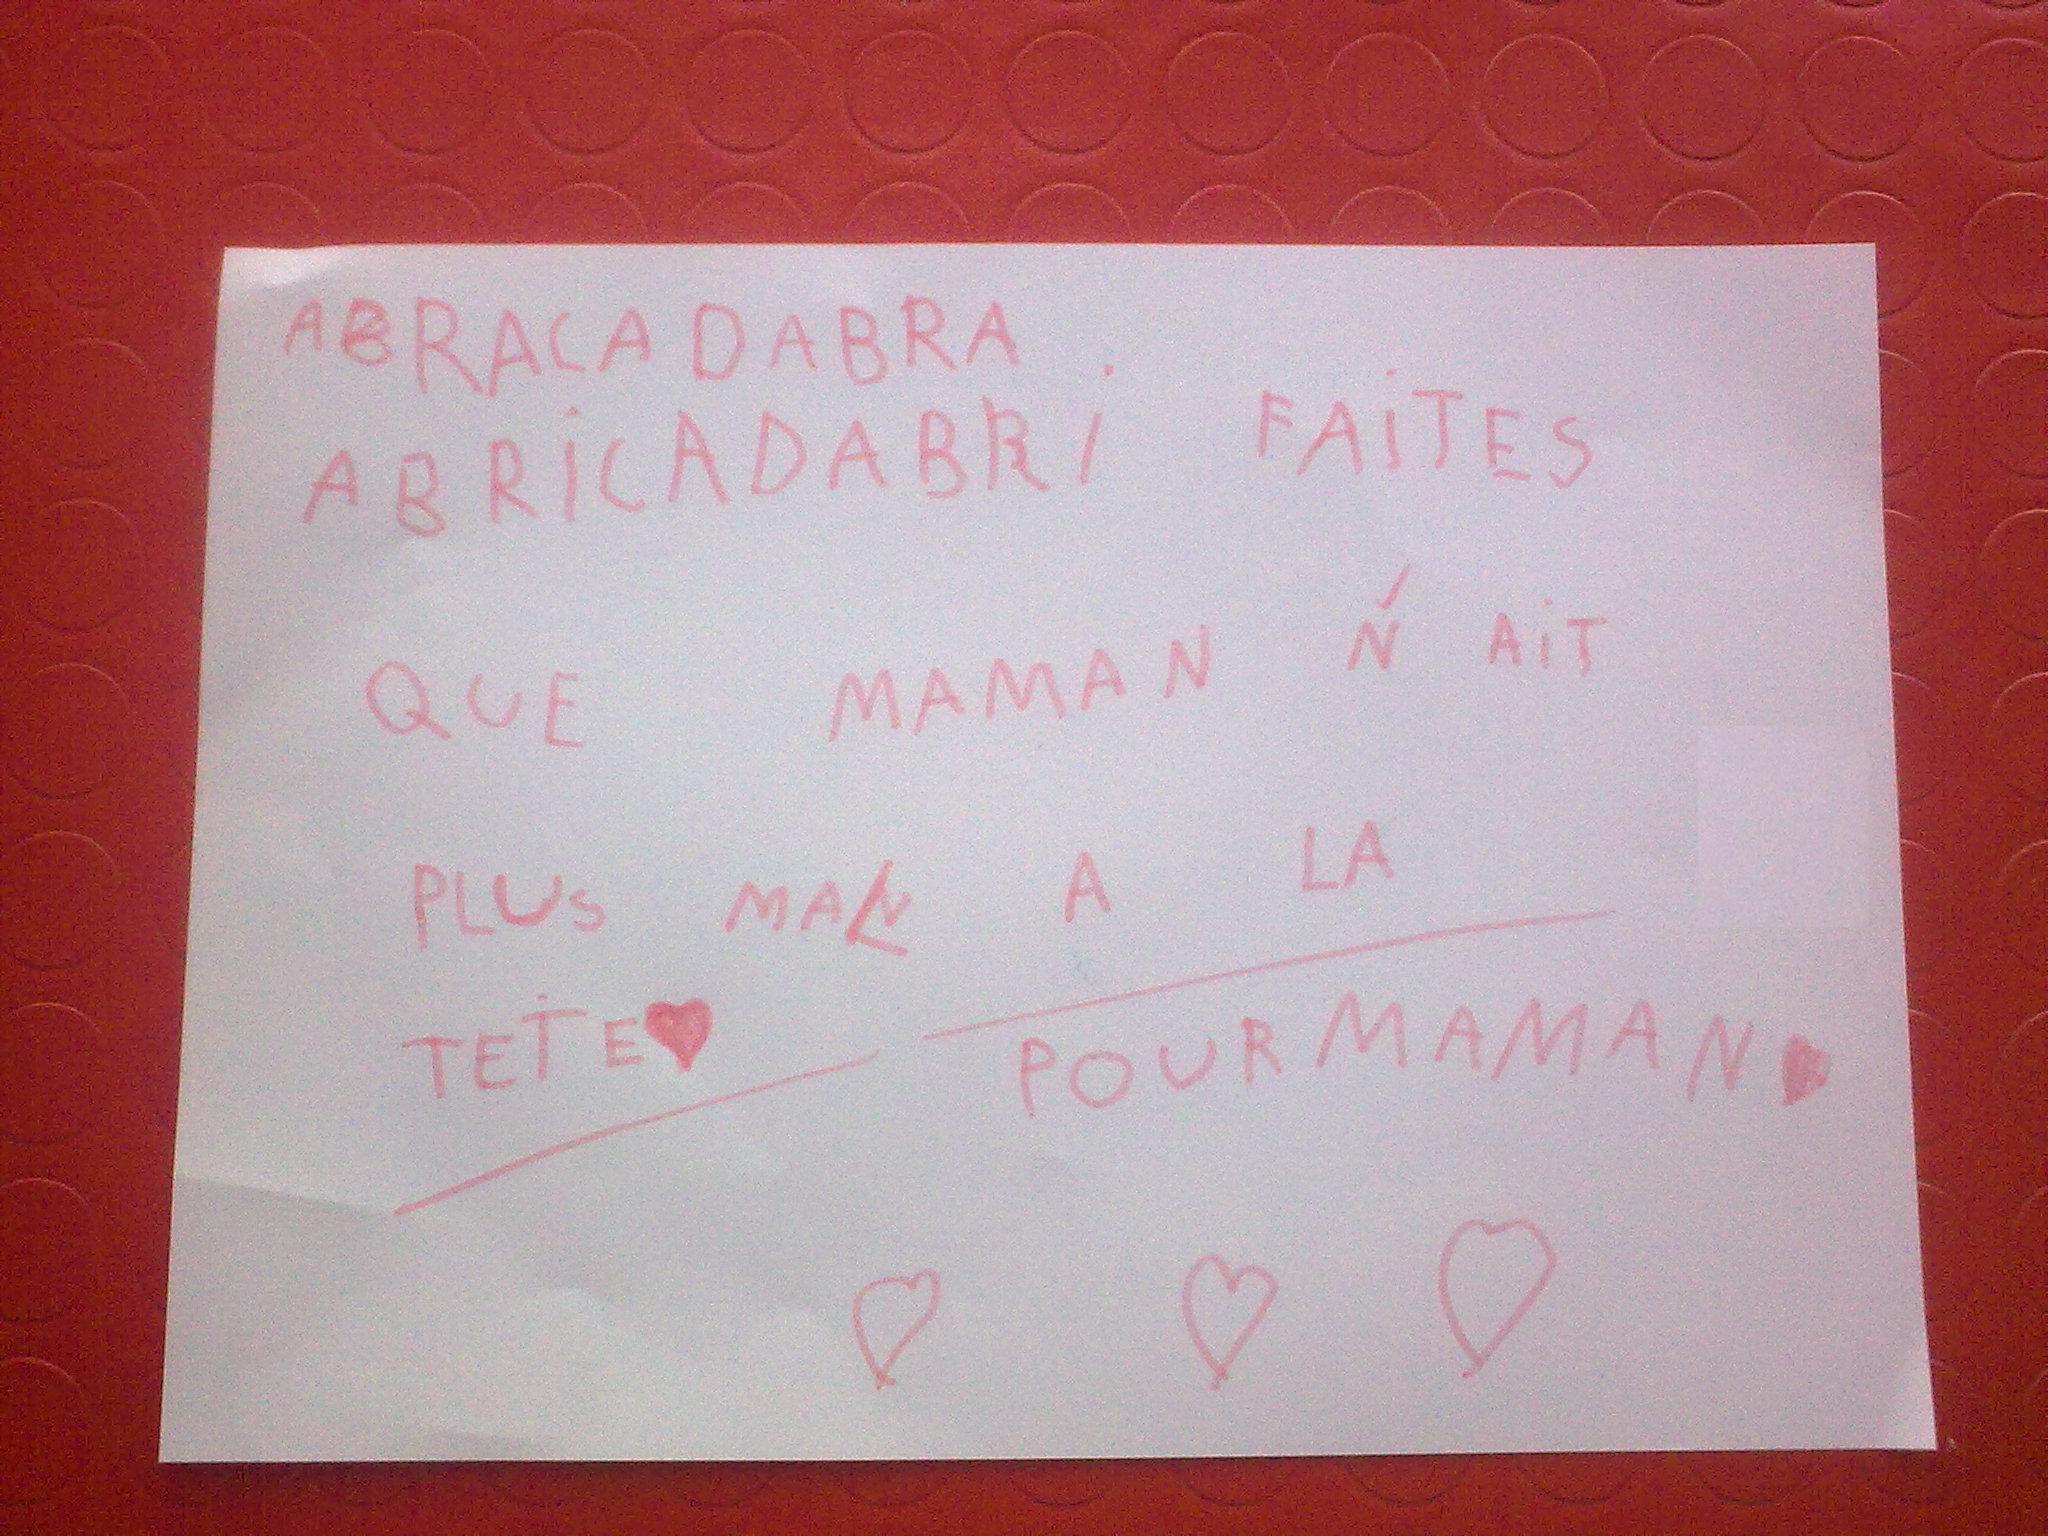 ABRACADABRA
ABRiCADABRi FAiTES
QUE MAMAN N' AiT
PLUS MAL A LA
TETE
POUR MAMAN